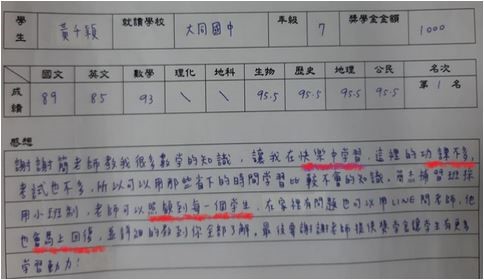 學生 黃千穎 就讀學校 大同國中 年級 7 獎學金金額 1000
國文 英文 數學 理化 地科 生物 歷史 地理 公民 名次
成績 89 85 93 \ \ 95.5 95.5 95.5 95.5 第 1 名
感想
謝謝簡老師教我很多數学的知識，讓我在快樂中学習，這裡的功課不多，
考試也不多，所以可以用那些省下的時間学習比較不會的知識。 補習班採
用小班制，老師可以照顧到每一個学生，在家裡有問題也可以用LINE問老師，他
也會馬上回復，並詳細的教到你全部了解。最後要謝謝老師提供獎学金讓学生有更多
学習動力!